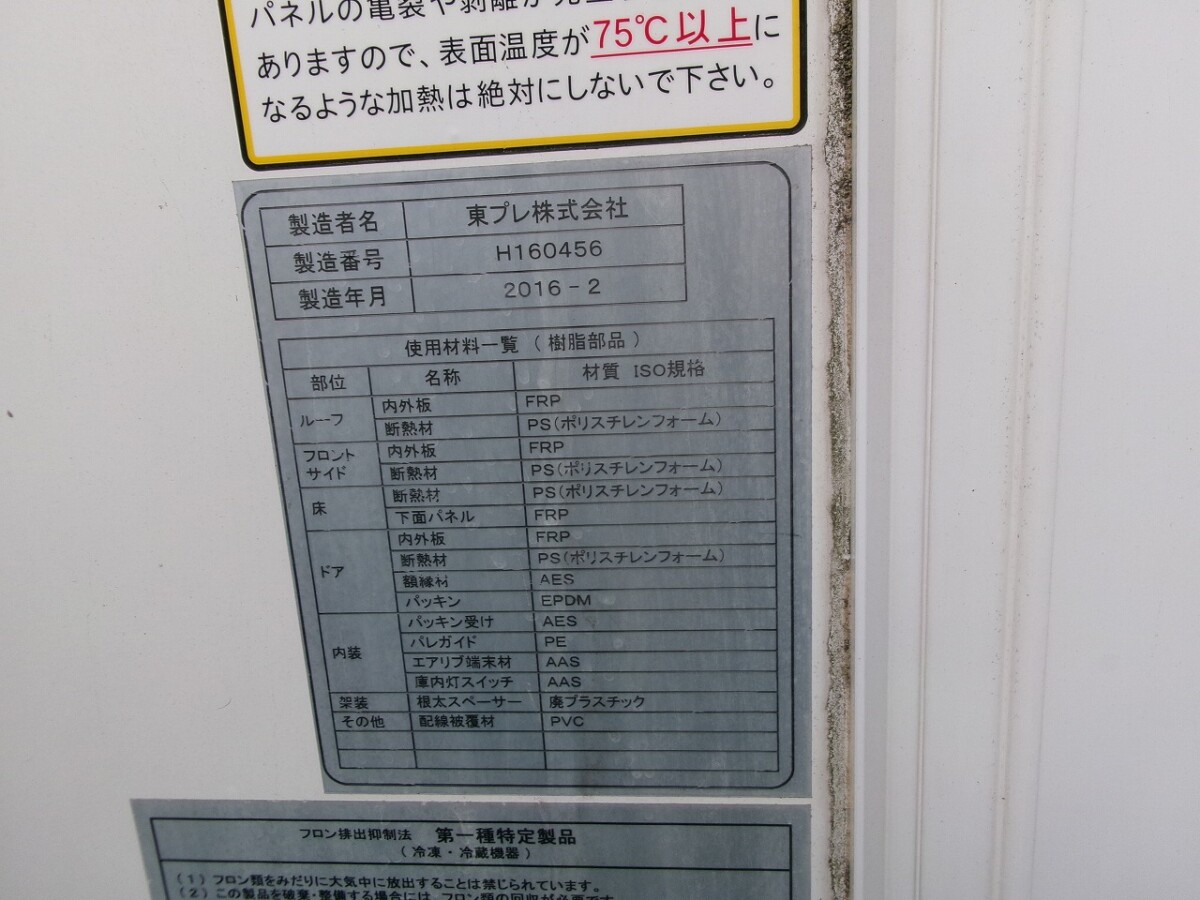 パネルの亀裂や剥離が
ありますので、表面温度が75℃以上に
なるような加熱は絶対にしないで下さい。
製造者名 東プレ株式会社
製造番号 H160456
製造年月 2016-2
使用材料一覧(樹脂部品)
部位 名称 材質 ISO規格
ルーフ 内外板 FRP
断熱材 PS(ポリスチレンフォーム)
フロント サイド 内外板 FRP
断熱材 PS(ポリスチレンフォーム)
床 断熱材 PS(ポリスチレンフォーム)
下面パネル FRP
ドア 内外板 FRP
断熱材 PS(ポリスチレンフォーム)
額縁材 AES
パッキン EPDM
内装 パッキン受け AES
パレガイド PE
エアリブ端末材 AAS
庫内灯スイッチ AAS
架装 根太スペーサー 廃プラスチック
その他 配線被覆材 PVC
フロン排出抑制法 第一種特定製品
(冷凍・冷蔵機器)
(1)フロン類をみだりに大気中に放出することは禁じられています。
(2)この製品を破棄・整備する場合には、フロン類の回収が必要です